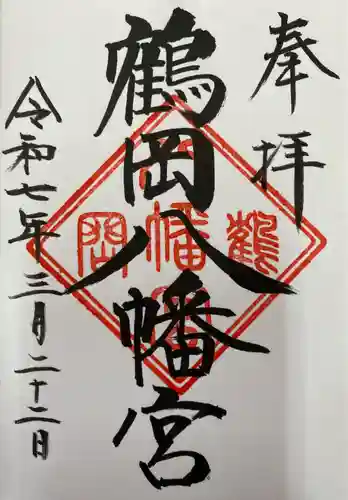 奉拝
鶴岡八幡宮
鶴
幡
岡
令和七年三月二十二日